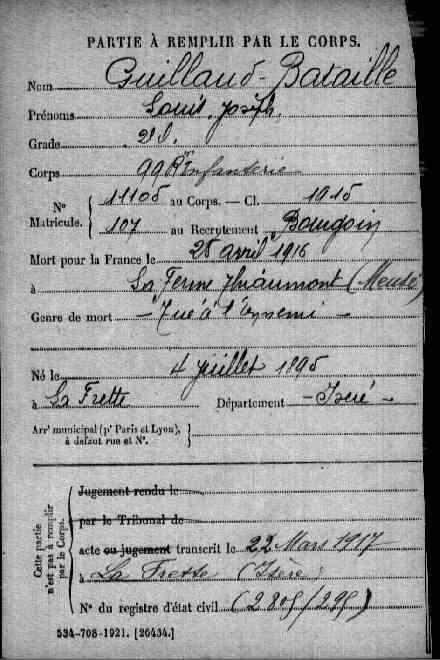 PARTIE À REMPLIR PAR LE CORPS.
Nom Guillaud-Bataille
Prénoms Louis, Joseph.
Grade 2e
Corps 99 R. Infanterie
Nº Matricule. 11105 au Corps. — Cl. 1915
107 au Recrutement Bourgoin
Mort pour la France le 28 avril 1916
à La Ferme Thiaumont (Meuse)
Genre de mort — Tué à l'Ennemi —
Né le 4 juillet 1895
à La Frette Département — Isère —
Arrt municipal (pr Paris et Lyon),
à défaut rue et Nº.
Cette partie
n'est pas à remplir
par le Corps.
Jugement rendu le
par le Tribunal de
acte ou jugement transcrit le 22 Mars 1917
à La Frette (Isère)
Nº du registre d'état civil (2805/295)
534-708-1921. [26434.]